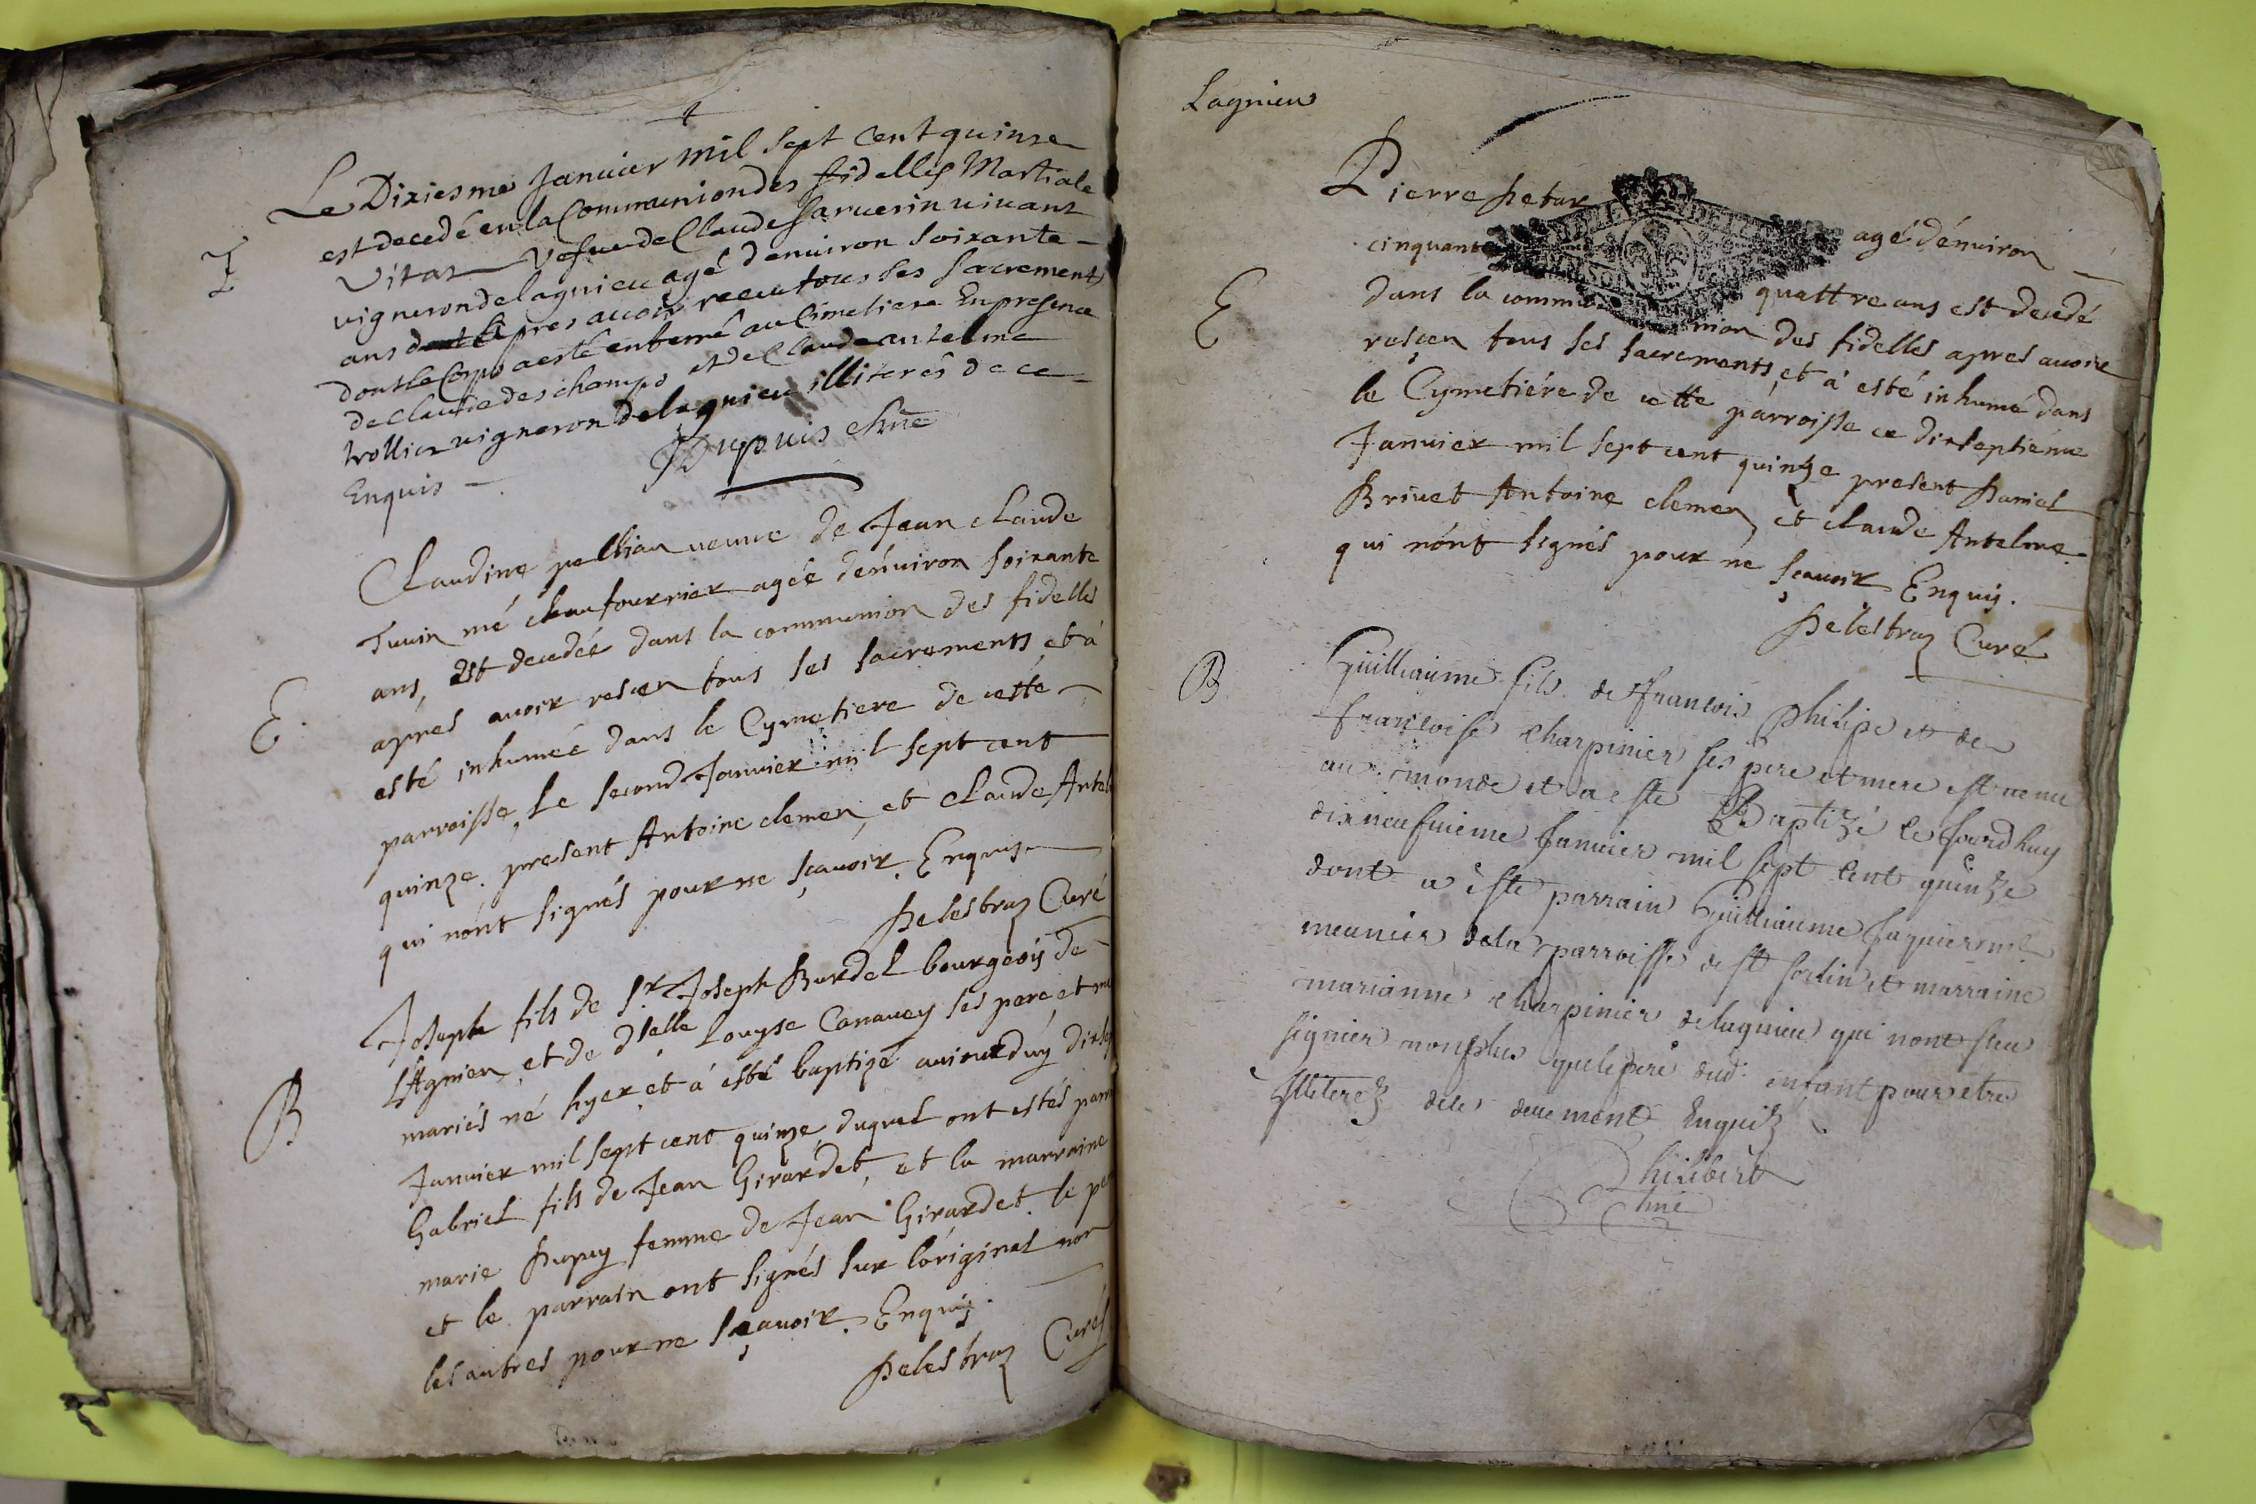 Le Dixiesme Januier mil sept cent quinze
est decedé en la Communion des fidelles Martiale
Vitat Vefue de Claude Saruerin viuant
E
vigneron de lagnieu agé denuiron soixante
ans apres auoir receu tous ses sacrements
dont le Corps a esté enterré au Cimetiere En presence
de Claude deschamps et de Claude antelme
trollier vigneron de lagnieu illiterés de ce
Enquis
Dupuis
Claudine pellian veuue de Jean claude
Tuuin mé chaufournier agée d'enuiron soixante
ans, est decedée dans la communion des fidelles
E.
apres auoir resceu tous ses sacrements, et à
esté inhumée dans le Cymetiere de cette
parroisse, Le second Januier mil sept cent
quinze. present Antoine clemen, et claude Antel
qui n'ont signés pour ne sçauoir. Enquis
Delestraz Curé
Joseph fils de Sr Joseph Burdel bourgeois de
LAgnieu, et de dlle Louyse Canauey ses pere, et me
B
mariés né hyer et à esté baptizé auiourd'uy dixsep
Januier mil sept cent quinze, duquel ont estés parr
Gabriel fils de Jean Girardet, et la marraine
marie Dupuy femme de Jean Girardet. le pe
et le parrain ont signés sur l'original non
les autres pour ne sçauoir. Enquis.
Delestraz Curé
Lagnieu
Pierre agé d'enuiron
cinquante quattre ans est decedé
E
dans la communion des fidelles apres auoir
resçeu tous ses sacrements, et à esté inhumé dans
le Cymetiére de cette parroisse ce dixseptieme
Januier mil sept cent quinze present Daniel
Briuet Antoine clemen, et claude Antelme
qui n'ont signés pour ne sçauoir Enquis.
Delestraz Curé
B
Guilliaume fils de francois philipe et de
francoise Charpinier ses pere et mere est venu
au monde et a este Baptizé ce jourdhuy
dixneufuieme Januier mil sept cent quinze
dont a este parrain Guilliaume Jaquier me
meunier de la parroisse de st sorlin et marraine
marianne charpinier de lagnieu qui nont sceu
signier non plus que le pere dud. enfant pour etre
Illiterez de ce deuement Enquis
Philibert